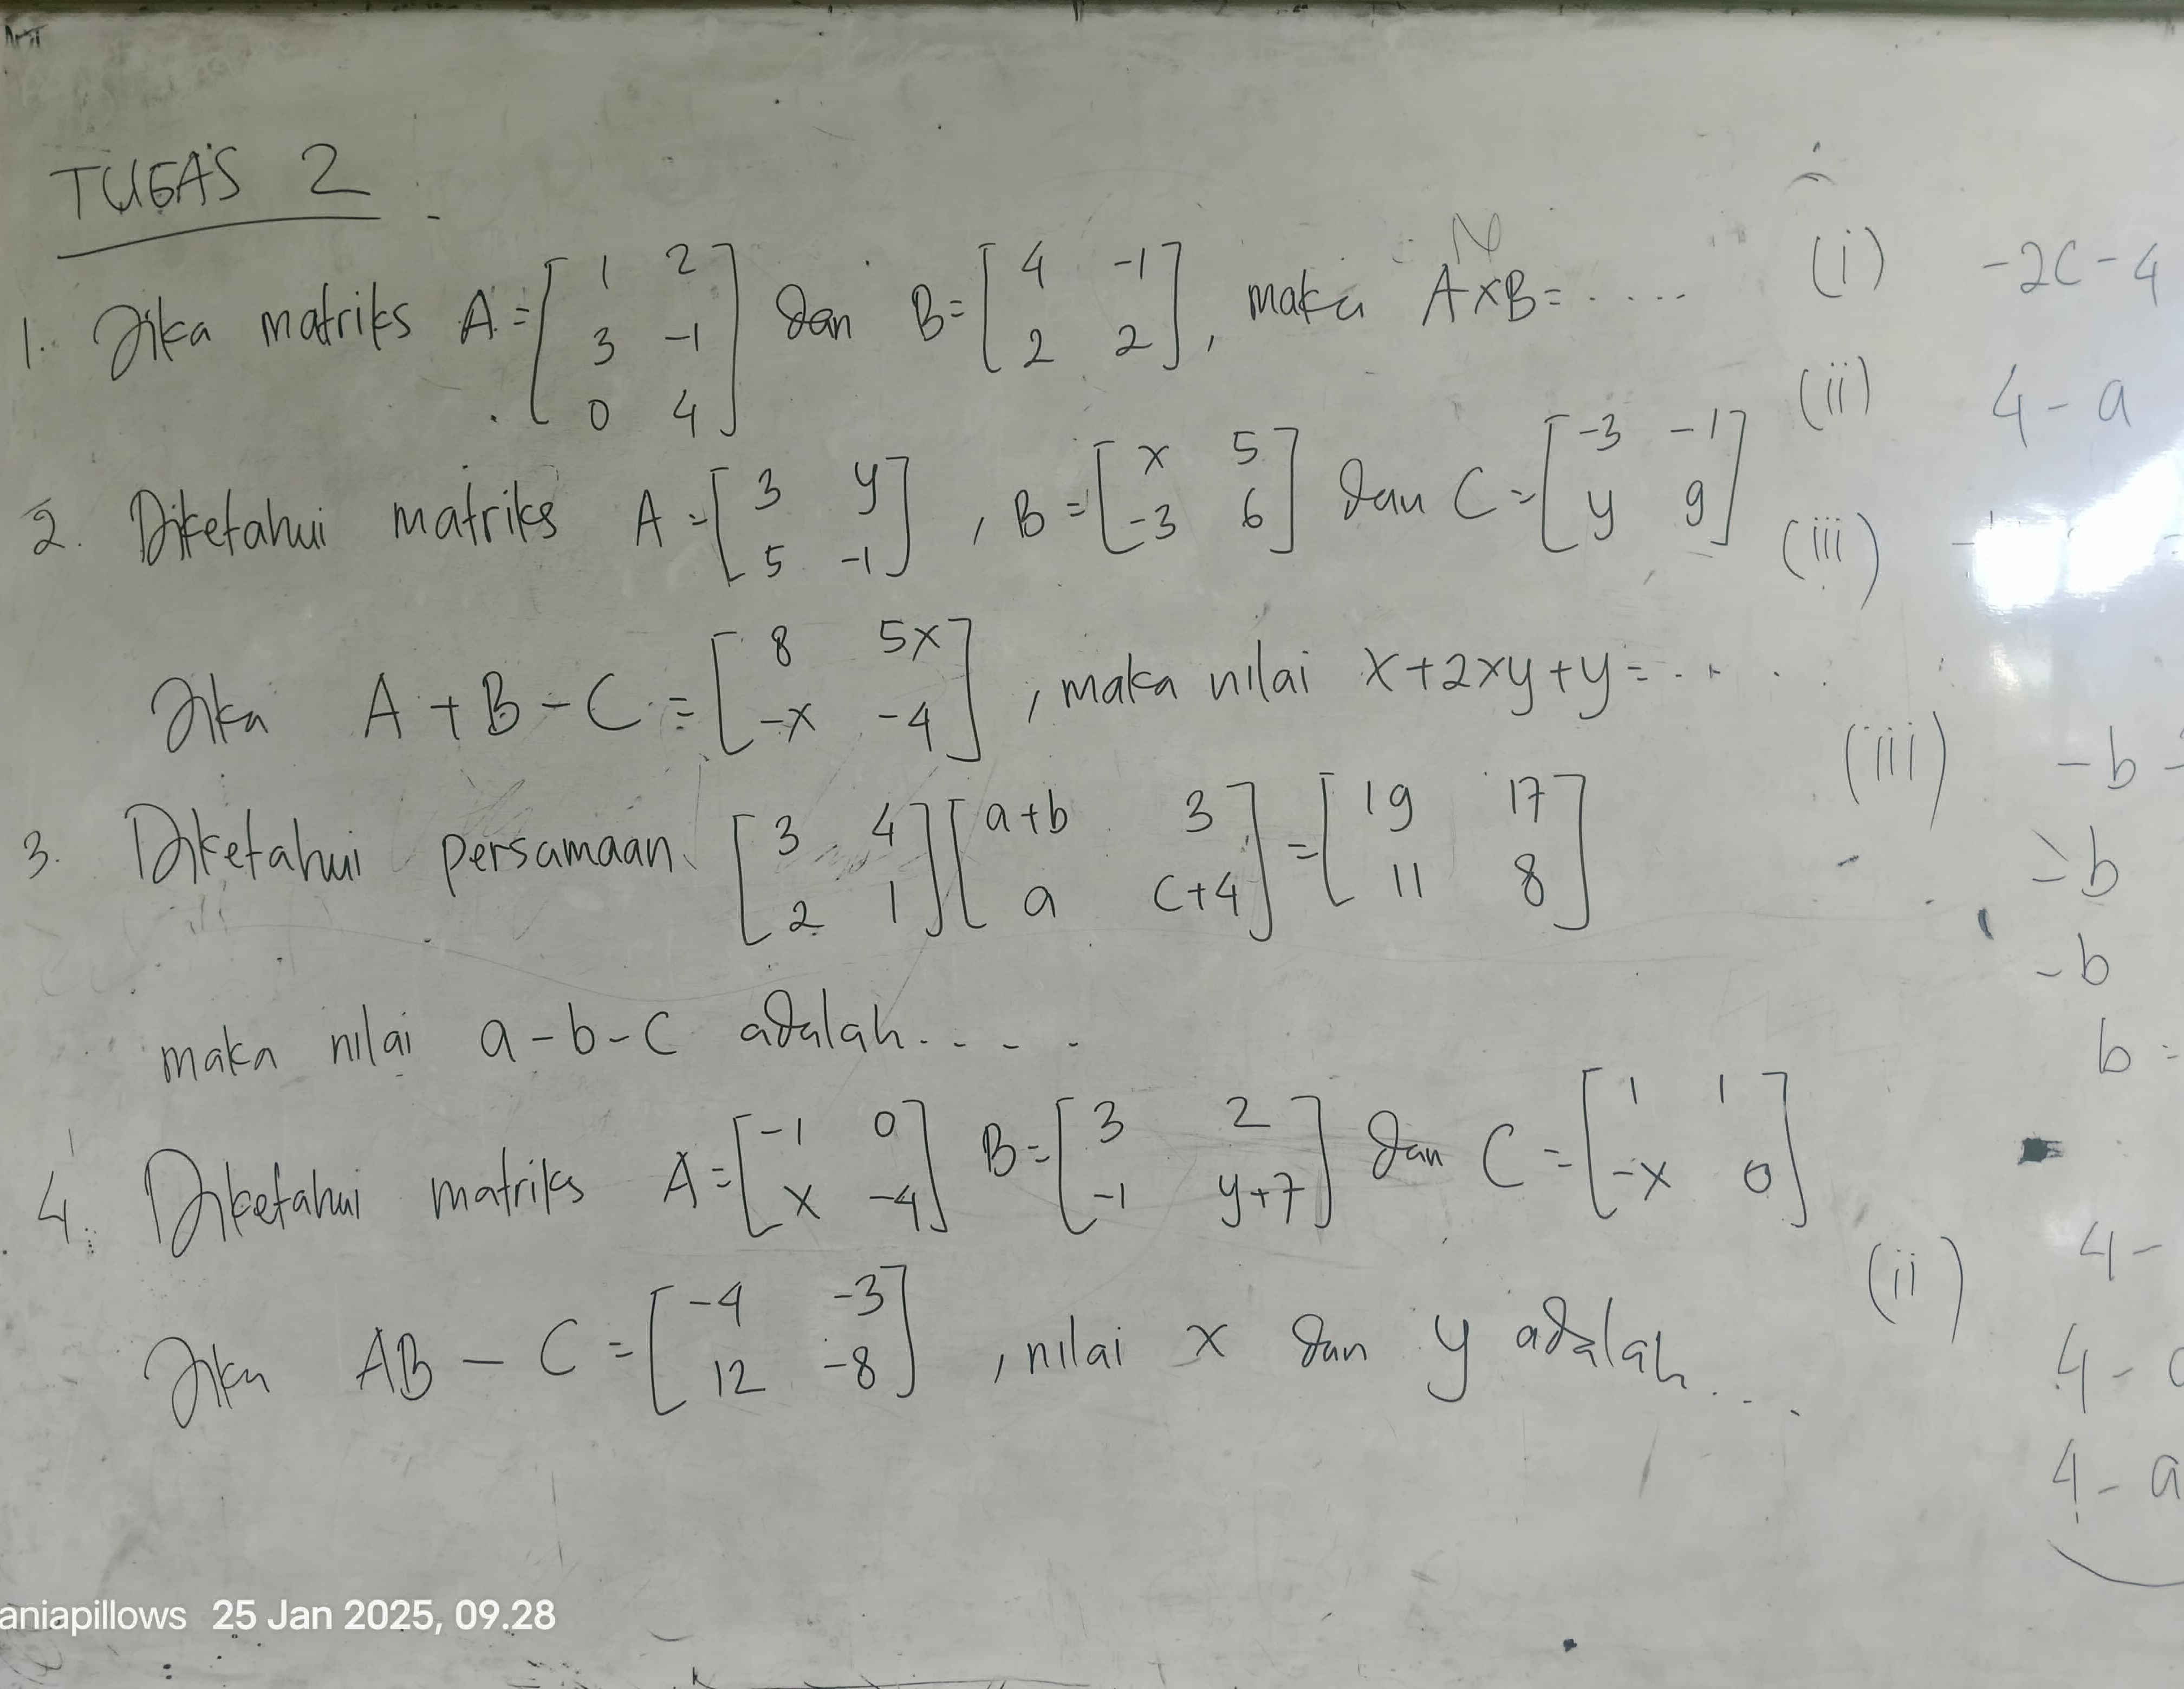 TUGAS 2
1. Jika matriks A = [1 2; 3 -1; 0 4] dan B = [4 -1; 2 2], maka A×B = .....
2. Diketahui matriks A = [3 y; 5 -1], B = [x 5; -3 6] dan C = [-3 -1; y 9]
Jika A + B - C = [8 5x; -x -4], maka nilai x+2xy+y = ....
3. Diketahui persamaan [3 4; 2 1][a+b 3; a c+4] = [19 17; 11 8]
maka nilai a-b-c adalah....
4. Diketahui matriks A = [-1 0; x -4] B = [3 2; -1 y+7] dan C = [1 1; -x 0]
Jika AB - C = [-4 -3; 12 -8], nilai x dan y adalah...
(i) -2c-4
(ii) 4-a
(iii)
(iii) -b
-b
-b
b =
(ii) 4-
4-
4-a
aniapillows 25 Jan 2025, 09.28